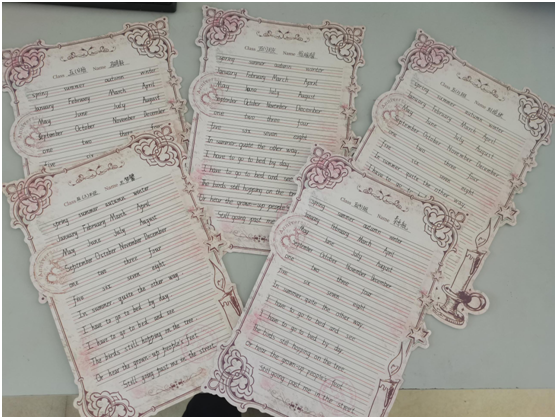 Class Name
spring summer autumn winter
January February March April
May June July August
September October November
one two three
Class Name
spring summer autumn winter
January February March April
May June July August
September October November December
one two three four
five six seven eight
In summer, quite the other way.
I have to go to bed by day.
I have to go to bed and see
The birds still hopping on the tree
Or hear the grown-up people's
Still going past me in the street
Class Name
spring summer autumn winter
January February March April
May June July August
September October November December
one two three four
five six seven eight
In summer, quite the other way
Class Name
spring summer autumn winter
January February March April
May June July August
September October November December
one two three four
five six seven eight
In summer, quite the other way.
I have to go to bed by day.
I have to go to bed and see
The birds still hopping on the tree
Or hear the grown-up people's feet
Still going past me in the street
Class Name
spring summer autumn winter
January February March April
May June July August
September October November December
one two three four
five six seven eight
In summer, quite the other way
I have to go to bed and see
I have to go to bed by day
The birds still hopping on the tree
Or hear the grown-up people's feet
Still going past me in the street